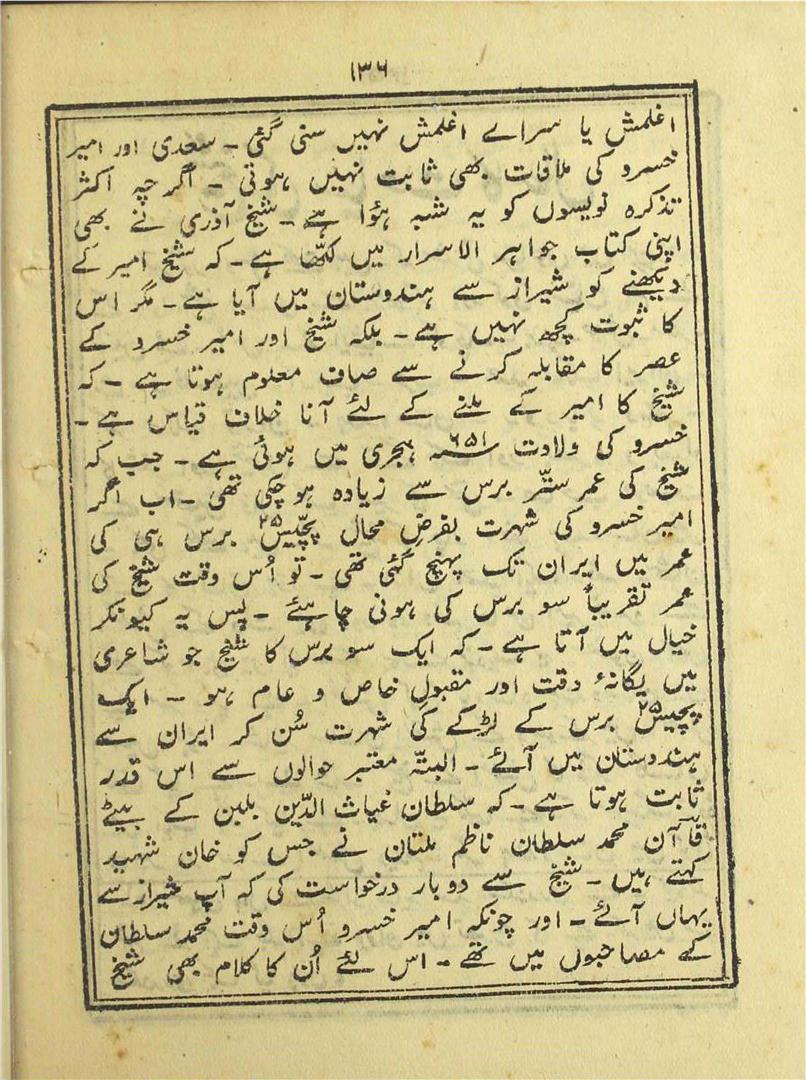 ۱۳۶
اغلمش یا سراے اغلمش نہیں سنی گئی ۔ سعدی اور امیر
خسرو کی ملاقات بھی ثابت نہیں ہوتی ۔ اگرچہ اکثر
تذکرہ نویسوں کو یہ شبہ ہؤا ہے ۔ شیخ آذری نے بھی
اپنی کتاب جواہر الاسرار میں لکھّا ہے ۔ کہ شیخ امیر کے
دیکھنے کو شیراز سے ہندوستان میں آیا ہے ۔ مگر اس
کا ثبوت کچھ نہیں ہے ۔ بلکہ شیخ اور امیر خسرو کے
عصر کا مقابلہ کرنے سے صاف معلوم ہوتا ہے ۔ کہ
شیخ کا امیر کے ملنے کے لئے آنا خلاف قیاس ہے ۔
خسرو کی ولادت ۶۵۱؁ ہجری میں ہوئی ہے ۔ جب کہ
شیخ کی عمر ستّر برس سے زیادہ ہو چکی تھی ۔ اب اگر
امیر خسرو کی شہرت بفرض محال پچّیس ۲۵ برس ہی کی
عمر میں ایران تک پہنچ گئی تھی ۔ تو اُس وقت شیخ کی
عمر تقریباً سو برس کی ہونی چاہئے ۔ پس یہ کیونکر
خیال میں آتا ہے ۔ کہ ایک سو برس کا شیخ جو شاعری
میں یگانۂ وقت اور مقبولِ خاص و عام ہو ۔ ایک
پچیس ۲۵ برس کے لڑکے کی شہرت سُن کر ایران سے
ہندوستان میں آئے ۔ البتّہ معتبر حوالوں سے اس قدر
ثابت ہوتا ہے ۔ کہ سلطان غیاث الدّین بلبن کے بیٹے
قاآن محمد سلطان ناظم ملتان نے جس کو خان شہید
کہتے ہیں ۔ شیخ سے دوبار درخواست کی کہ آپ شیراز سے
یہاں آئے ۔ اور چونکہ امیر خسرو اُس وقت محمد سلطان
کے مصاحبوں میں تھے ۔ اس لئے اُن کا کلام بھی شیخ